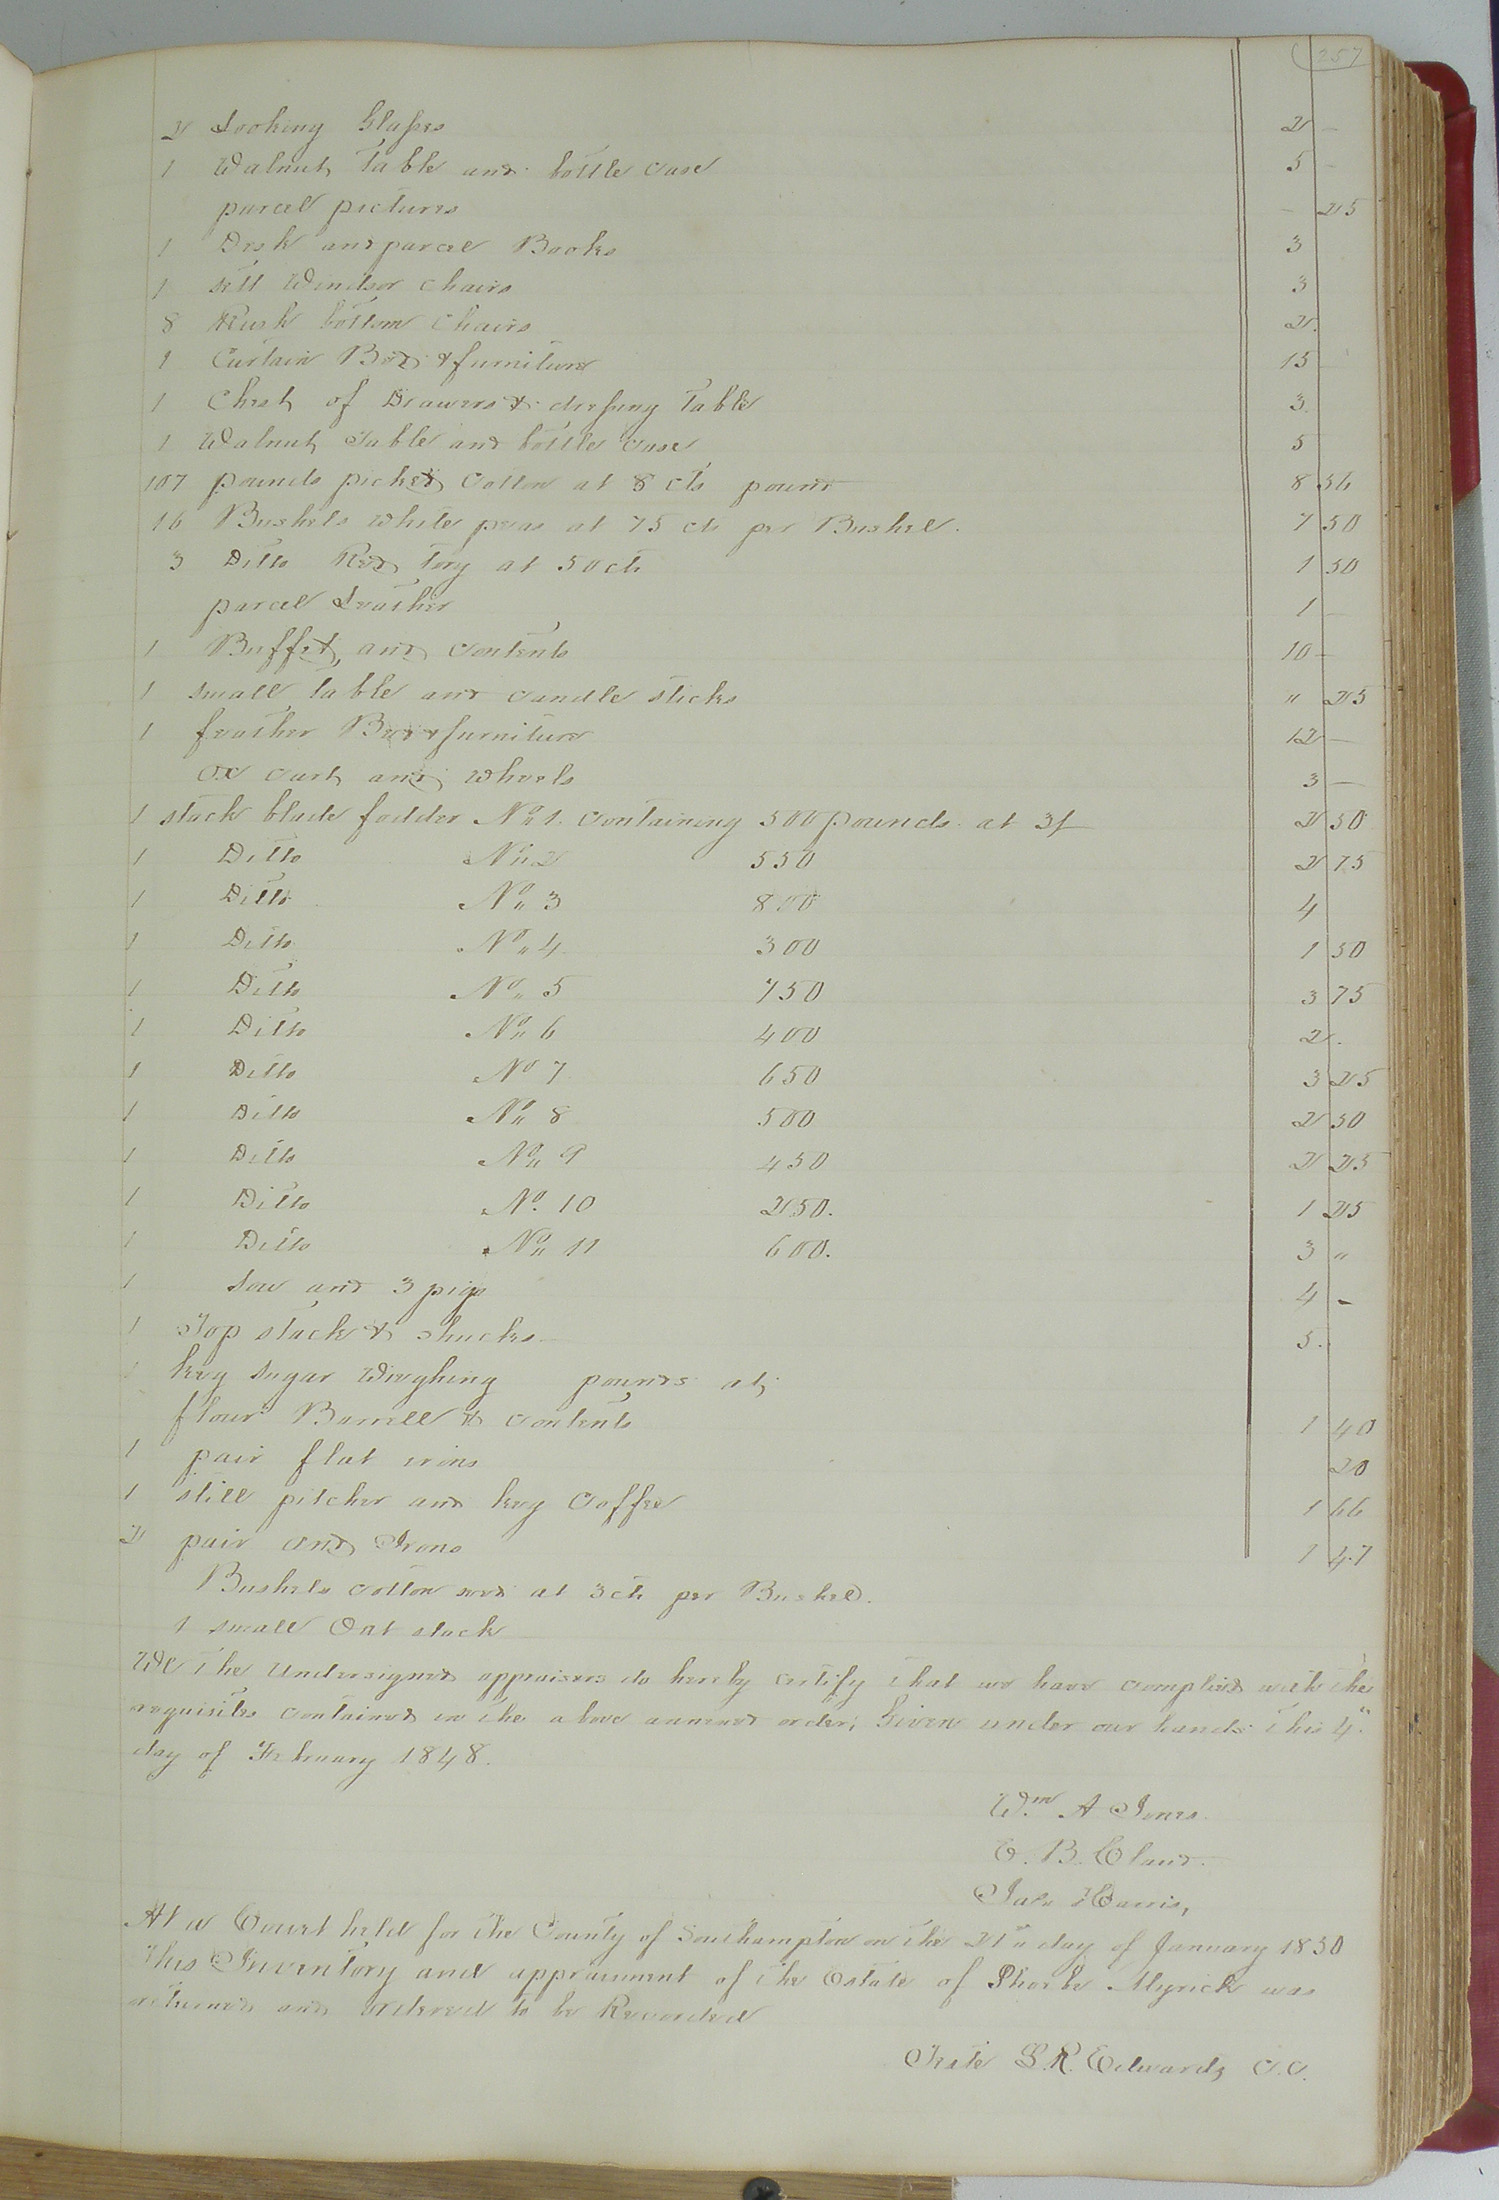 257
2 Looking Glasses 2 –
1 Walnut Table and bottle case 5 –
parcel pictures – 25
1 Desk and parcel Books 3
1 sett Windsor Chairs 3
8 Rush bottom Chairs 2
1 Curtain Bed & furniture 15
1 Chest of Drawers & dressing Table 3
1 Walnut Table and bottle case 5
107 pounds picked Cotton at 8 cts pound 8 56
16 Bushels white peas at 75 cts per Bushel. 7 50
3 Ditto Red Tory at 50 cts 1 50
parcel Leather 1 –
1 Buffet and contents 10 –
1 small table and candle sticks " 25
1 feather Bed & furniture 12 –
ox cart and wheels 3 –
1 stack blade fodder No 1. containing 500 pounds at 3/ 2 50
1 Ditto No 2 550 2 75
1 Ditto No 3 800 4
1 Ditto No 4 300 1 50
1 Ditto No 5 750 3 75
1 Ditto No 6 400 2
1 Ditto No 7 650 3 25
1 Ditto No 8 500 2 50
1 Ditto No 9 450 2 25
1 Ditto No. 10 250. 1 25
1 Ditto No 11 600. 3 "
1 Sow and 3 pigs 4 –
1 Top stack & shucks 5
1 keg sugar weighing pounds at
flour Barrell & contents 1 40
1 pair flat irons 20
1 still pitcher and keg Coffee 1 66
2 pair And Irons 1 47
Bushels cotton seed at 3 cts per Bushel.
1 small Oat stack
We the Undersigned appraisers do hereby certify that we have complied with the
requisites contained in the above annexed order, Given under our hands this 4"
day of February 1848.
Wm A Jones
E. B. Claud
Harris,
At a Court held for the County of Southampton on the 21" day of January 1850
This Inventory and appraisment of the Estate of Phoebe Myrick was
returned and ordered to be Recorded
Teste L. R. Edwards C. C.